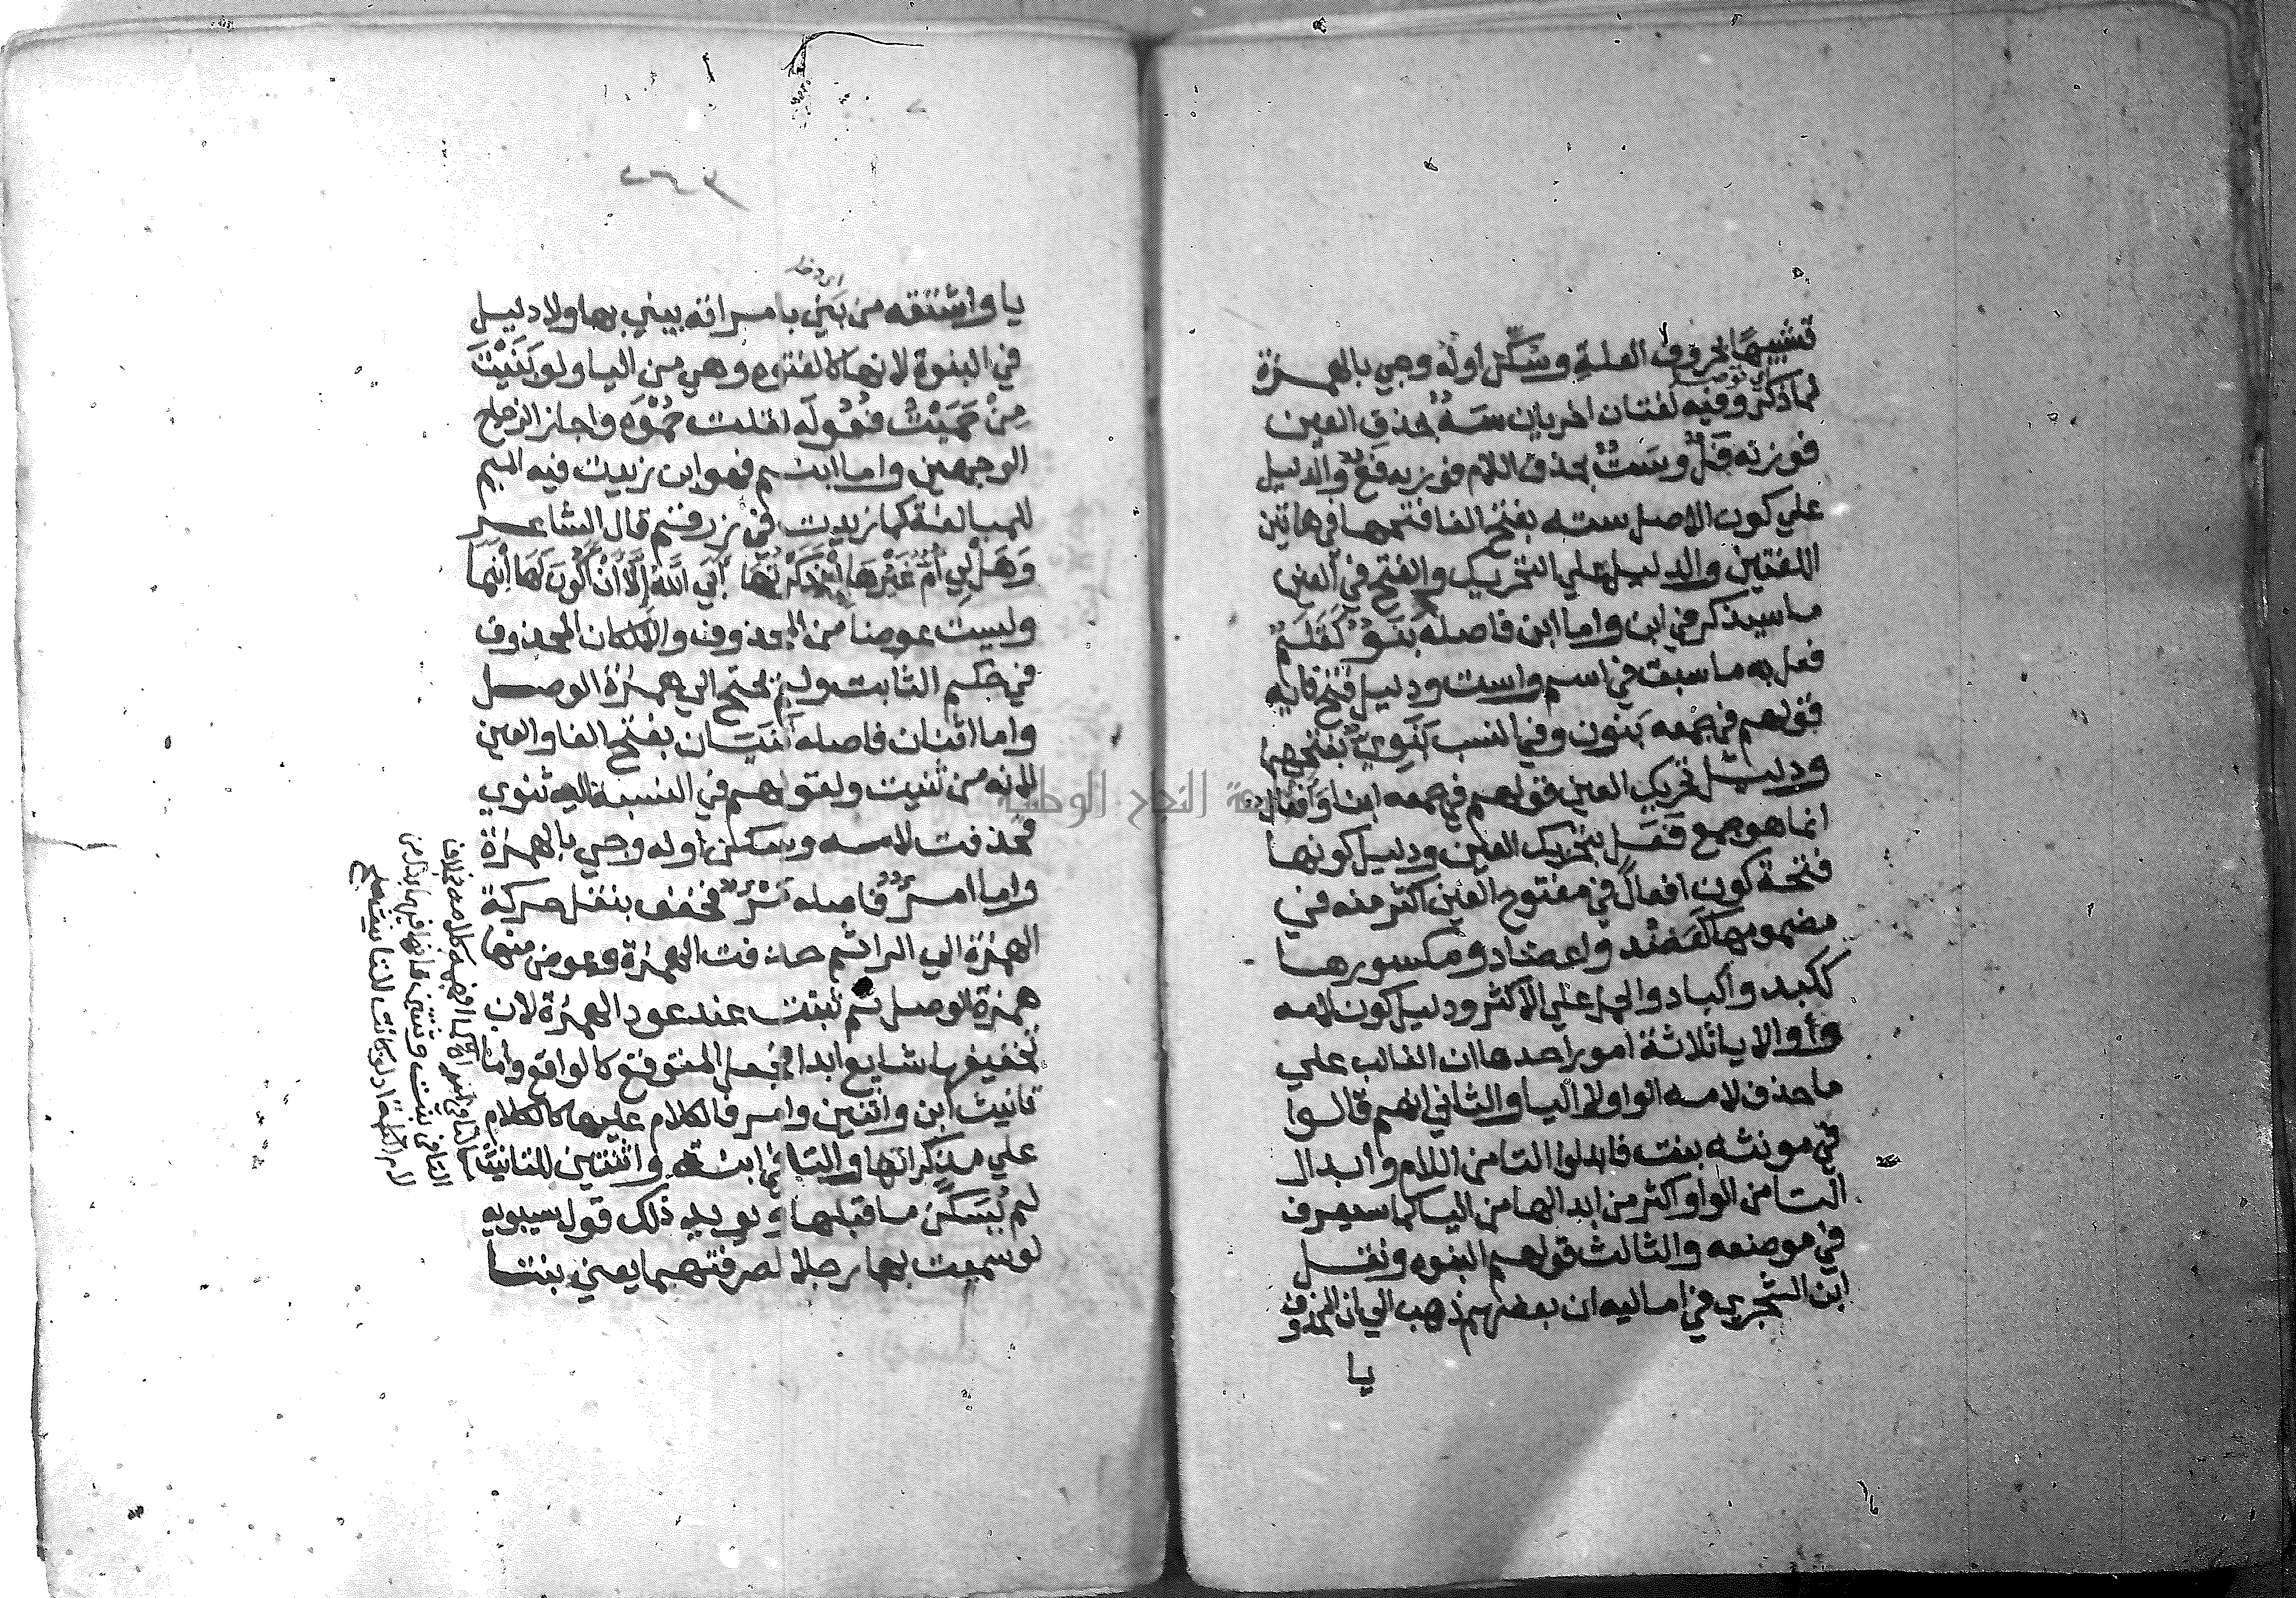 تشبيها بحروف العلة وسكن أوله وجي بالهمزة
لما ذكر وفيه لغتان اخريان سَهٌ بحذف العين
فوزنه فل وسَتٌ بحذف اللام فوزنه فع والدليل
علي كون الاصل سته بفتح الفا فتحها في هاتين
اللغتين والدليل علي التحريك والفتح في العين
ما سيذكر في ابن واما ابن فاصله بنو كقلم
فعل به ما سبق في اسم واست ودليل فتح فايه
قولهم في جمعه بنون وفي النسب بنوي بفتحهما
ودليل تحريك العين قولهم في جمعه ابنا وافعال
انما هو جمع فعل بتحريك العين ودليل كونها
فتحة كون افعال في مفتوح العين اكثر منه في
مضمومها كعضد واعضاد ومكسورها
ككبد وأكباد والحمل علي الاكثر ودليل كون لامه
واوا لا يا ثلاثة امور احدها ان الغالب علي
ما حذف لامه الواو لا اليا والثاني انهم قالوا
في مونثه بنت فابدلوا التا من اللام وابدال
التا من الواو اكثر من ابدالها من اليا كما سيعرف
في موضعه والثالث قولهم البنوه ونقل
ابن الشجري في اماليه ان بعضهم ذهب الي ان المحذوف
يا
يا واشتقه من بَنَي بامراته يبني بها ولا دليل
في البنوة لانها كالفتوه وهي من اليا ولو بَنَيْتَ
مِنْ حَمَيْتُ فُعُولَه لقلت حُمُوَّه واجاز الزجاج
الوجهين واما ابنم فهو ابن زيدت فيه الميم
للمبالغة كما زيدت في زرقم قال الشاعر
وَهَلْ لِي أُمٌّ غَيْرُهَا إِنْ ذَكَرْتُهَا أَبَي اللَّهُ إِلَّا أَنْ أَكُونَ لَهَا ابْنَمَا
وليست عوضا من المحذوف والا لكان المحذوف
في حكم الثابت ولم يحتج الي همزة الوصل
واما اثنان فاصله ثنيان بفتح الفا والعين
لانه من ثنيت ولقولهم في النسبة اليه ثنوي
فحذفت لامه وسكن أوله وجي بالهمزة
واما امرؤ فاصله مرء فخفف بنقل حركة
الهمزة الي الرا ثم حذفت الهمزة وعوض منها
همزة الوصل ثم ثبتت عند عود الهمزة لان
تخفيفها شايع ابدا فجعل المتوقع كالواقع واما
تانيث ابن واثنين وامر فالكلام عليها كالكلام
علي مذكراتها والتا في ابنة واثنتين للتانيث
لم يُسَكَّن ما قبلها ويويد ذلك قول سيبويه
لو سميت بهما رجلا لصرفتهما يعني بنتا